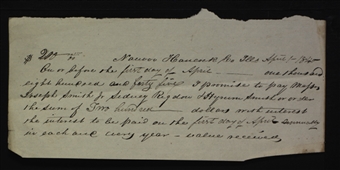 Nauvoo Hancock Co Ills April
On or before the first day of April one thousand
eight hundred and forty five I promise to pay Mess
Joseph Smith Jr Sidney Rigdon & Hyrum Smith or order
the sum of Two hundred dollars with interest
the interest to be paid on the first day of April annually
in each and every year – value received